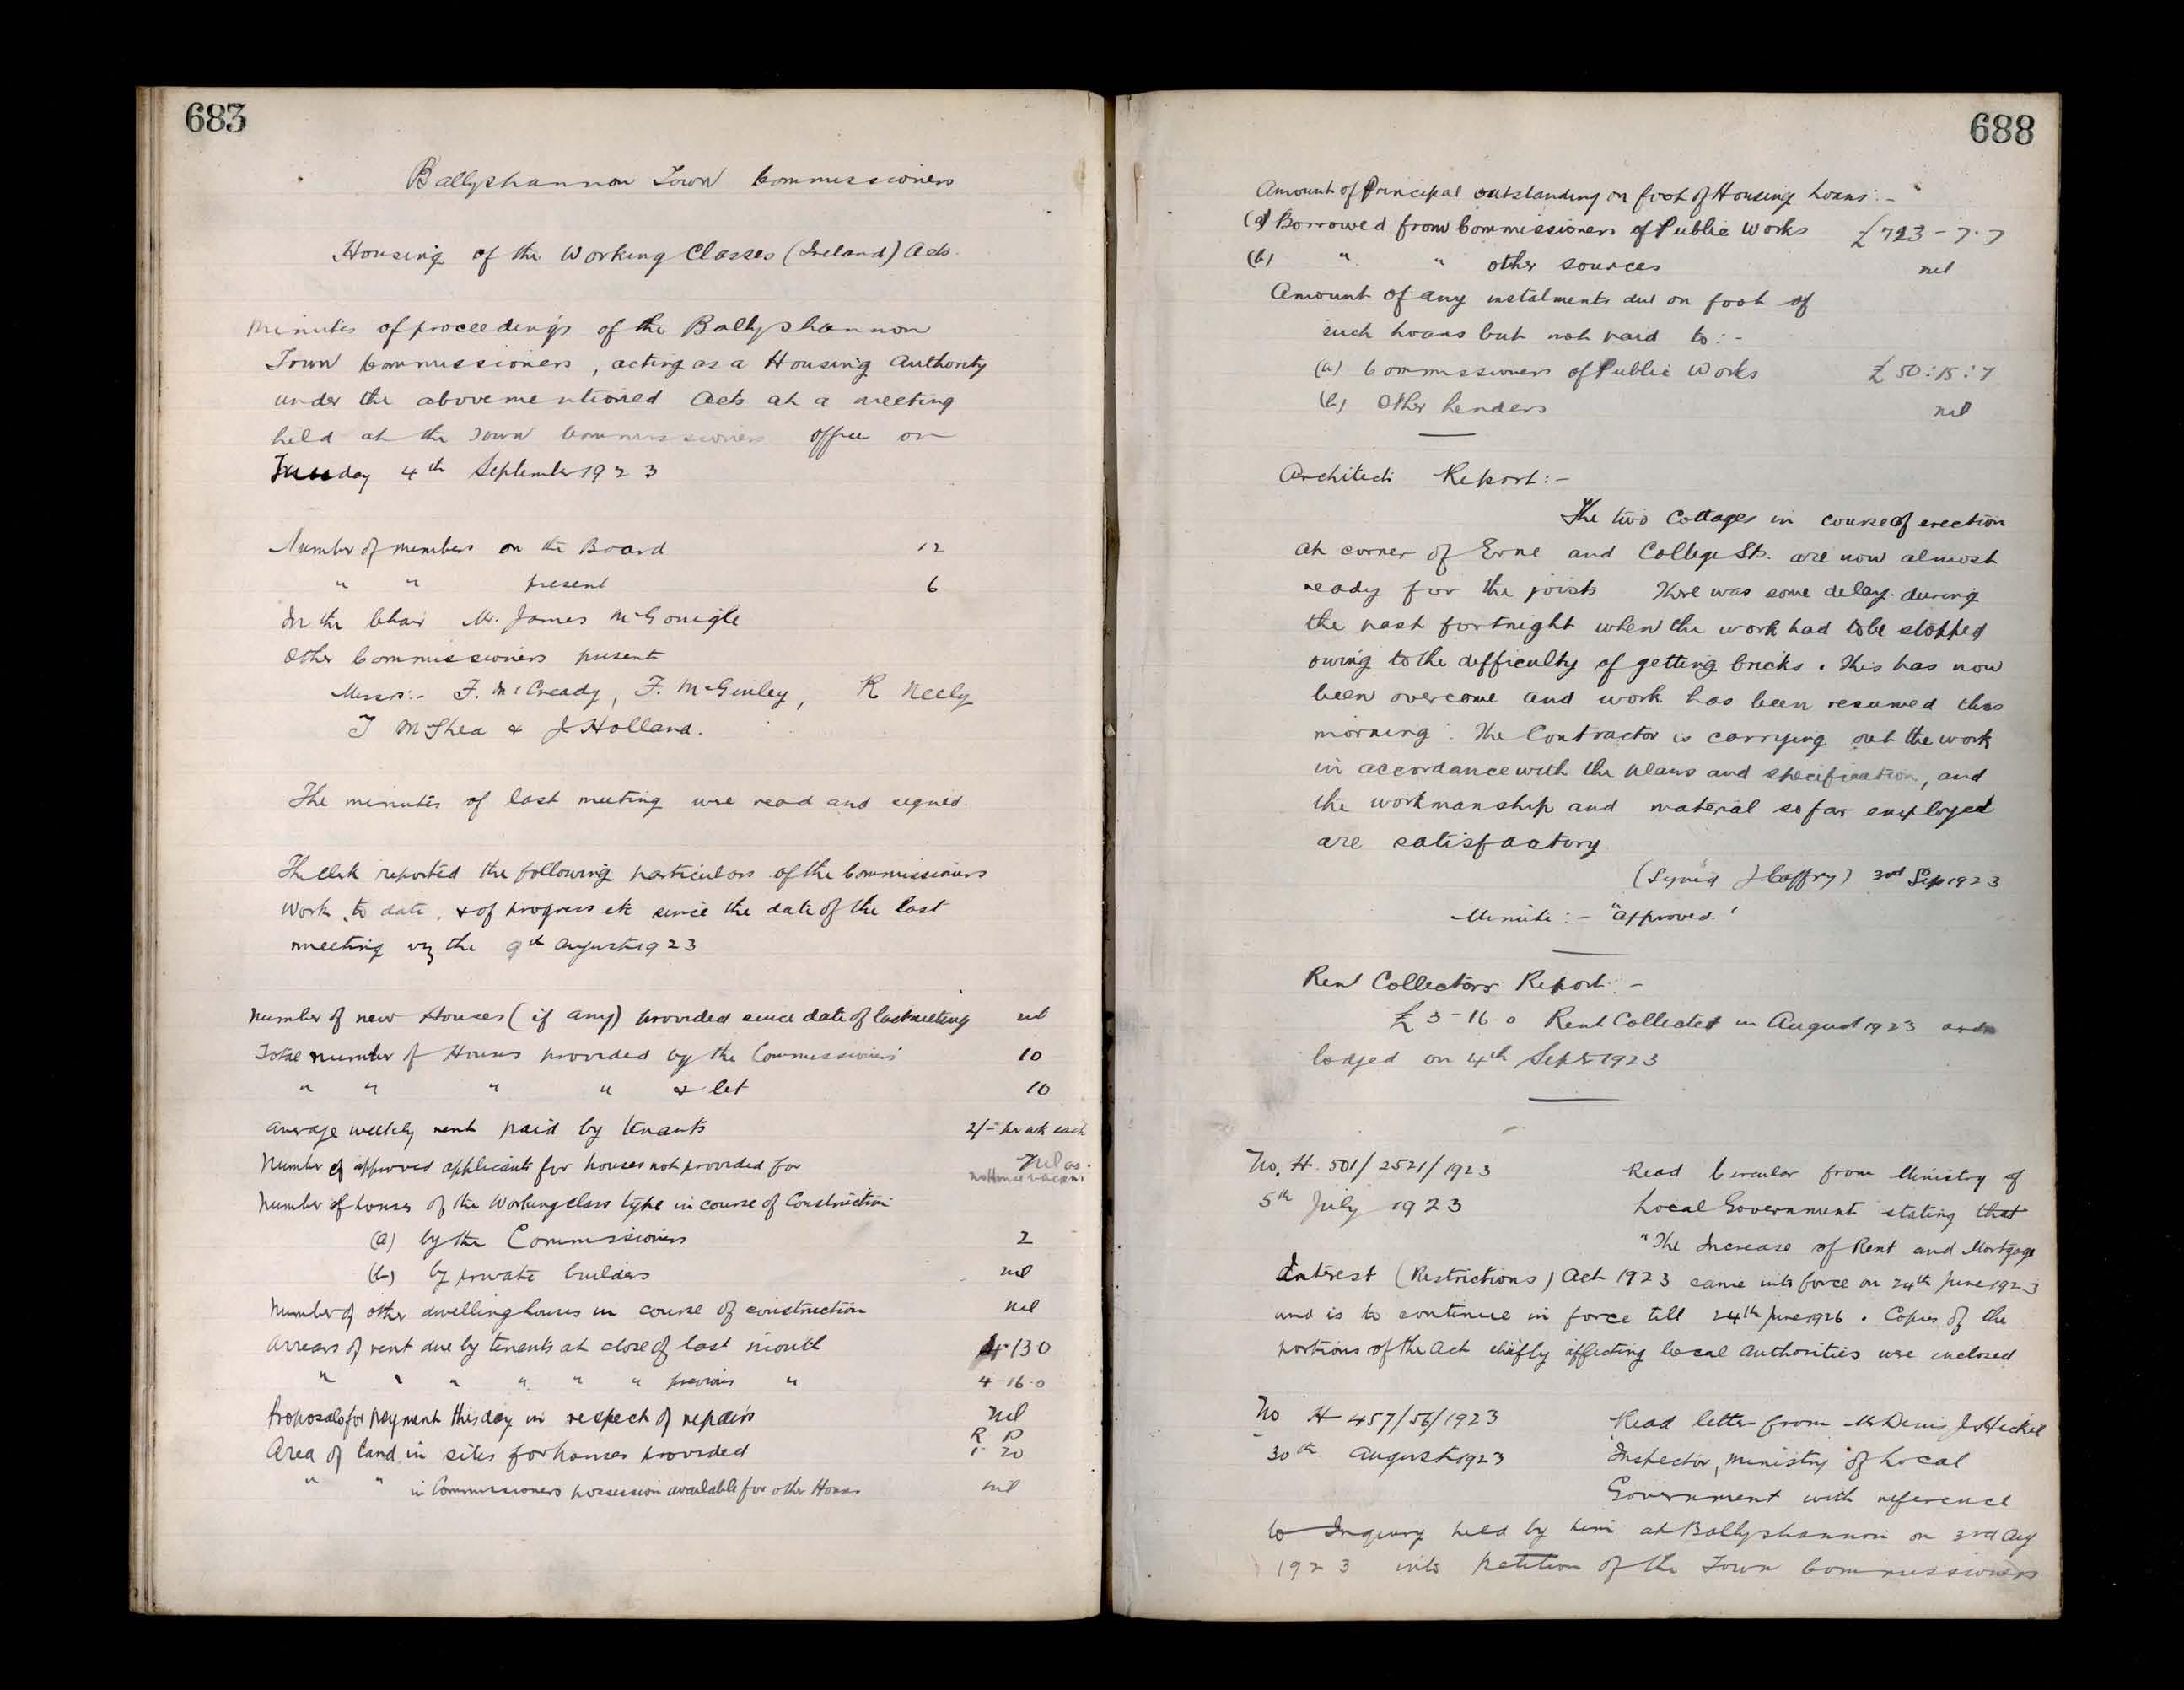 683
Ballyshannon Town Commissioners
Housing of the Working Classes (Ireland) Acts.
Minutes of proceedings of the Ballyshannon
Town Commissioners, acting as a Housing Authority
under the abovementioned Acts at a meeting
held at the Town Commissioners office on
Tuesday 4th September 1923
Number of members on the Board 12
" " present 6
In the Chair Mr. James McGonigle
Other Commissioners present
Messrs:- F. McCready, F. McGinley, R Neely
T McShea & J Holland.
The minutes of last meeting were read and signed.
The Clerk reported the following particulars of the Commissioners
Work to date, & of progress etc since the date of the last
meeting viz the 9th August 1923
Number of new Houses (if any) provided since date of last meeting nil
Total number of Houses provided by the Commissioners 10
" " " " & let 10
Average weekly rent paid by tenants 2/- per wk each
Number of approved applicants for houses not provided for Nil as
no House vacant
Number of houses of the Working class type in course of Construction
(a) by the Commissioners 2
(b) by private builders nil
Number of other dwellinghouses in course of construction nil
Arrears of rent due by tenants at close of last month 4-13 0
" " " " " " previous " 4-16-0
Proposals for payment this day in respect of repairs Nil
R P
Area of land in sites for houses provided 1 20
" " in Commissioners possession available for other Houses nil
688
Amount of Principal outstanding on foot of Housing Loans:-
(a) Borrowed from Commissioners of Public Works £723-7-7
(b) " " other sources nil
Amount of any instalments due on foot of
such Loans but not paid to:-
(a) Commissioners of Public Works £50:15:7
(b) Other Lenders nil
Architects Report:-
The two Cottages in course of erection
at corner of Erne and College Sts. are now almost
ready for the joists There was some delay during
the past fortnight when the work had to be stopped
owing to the difficulty of getting bricks. This has now
been overcome and work has been resumed this
morning. The Contractor is carrying out the work
in accordance with the plans and specification, and
the workmanship and material so far employed
are satisfactory
(Signed J Caffry) 3rd Sep 1923
Minute:- "Approved."
Rent Collectors Report:-
£3-16 0 Rent Collected in August 1923 and
lodged on 4th Sept 1923
No. H. 501/2521/1923 Read Circular from Ministry of
5th July 1923 Local Government stating that
"The Increase of Rent and Mortgage
Interest (Restrictions) Act 1923 came into force on 24th June 1923
and is to continue in force till 24th June 1926. Copies of the
portions of the Act chiefly affecting local authorities were enclosed
No H 457/56/1923 Read letter from Mr Denis J Hickie
30th August 1923 Inspector, Ministry of Local
Government with reference
to Inquiry held by him at Ballyshannon on 3rd Aug
1923 into petition of the Town Commissioners